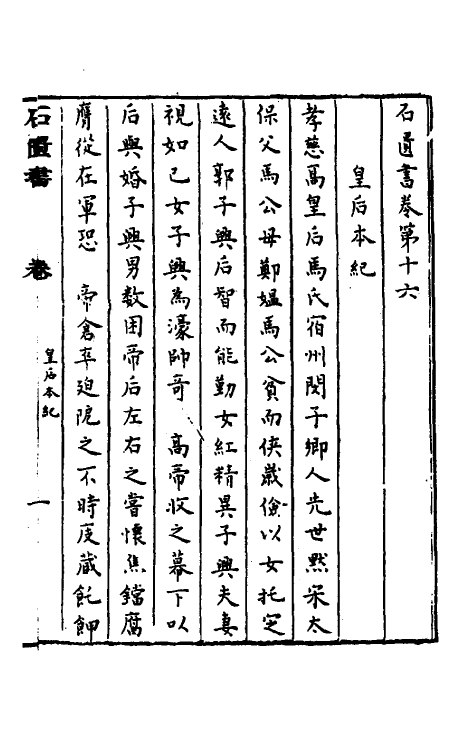 石匱書卷第十六
皇后本紀
孝慈高皇后馬氏宿州閔子鄉人先世默宋太
保父馬公母鄭媼馬公貧而俠歲儉以女托定
遠人郭子興后智而能勤女紅精異子興夫妻
視如己女子興為濠帥奇 高帝收之幕下以
后與婚子興男數困帝后左右之嘗懷焦鐺腐
膺從在軍恐 帝倉卒迫阨之不時庋藏飥餌
石匱書 卷
皇后本紀
一